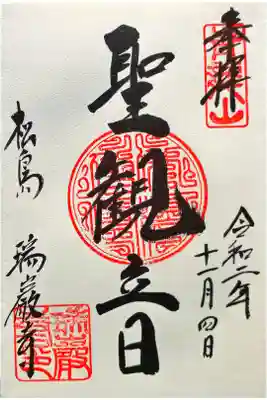 奉拝
令和二年
十一月四日
聖観立日
松島
瑞巌寺